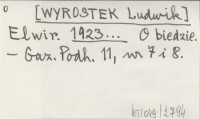 [WYROSTEK Ludwik]
Elwir. 1923... O biedzie.
— Gaz. Podh. 11, nr 7 i 8.